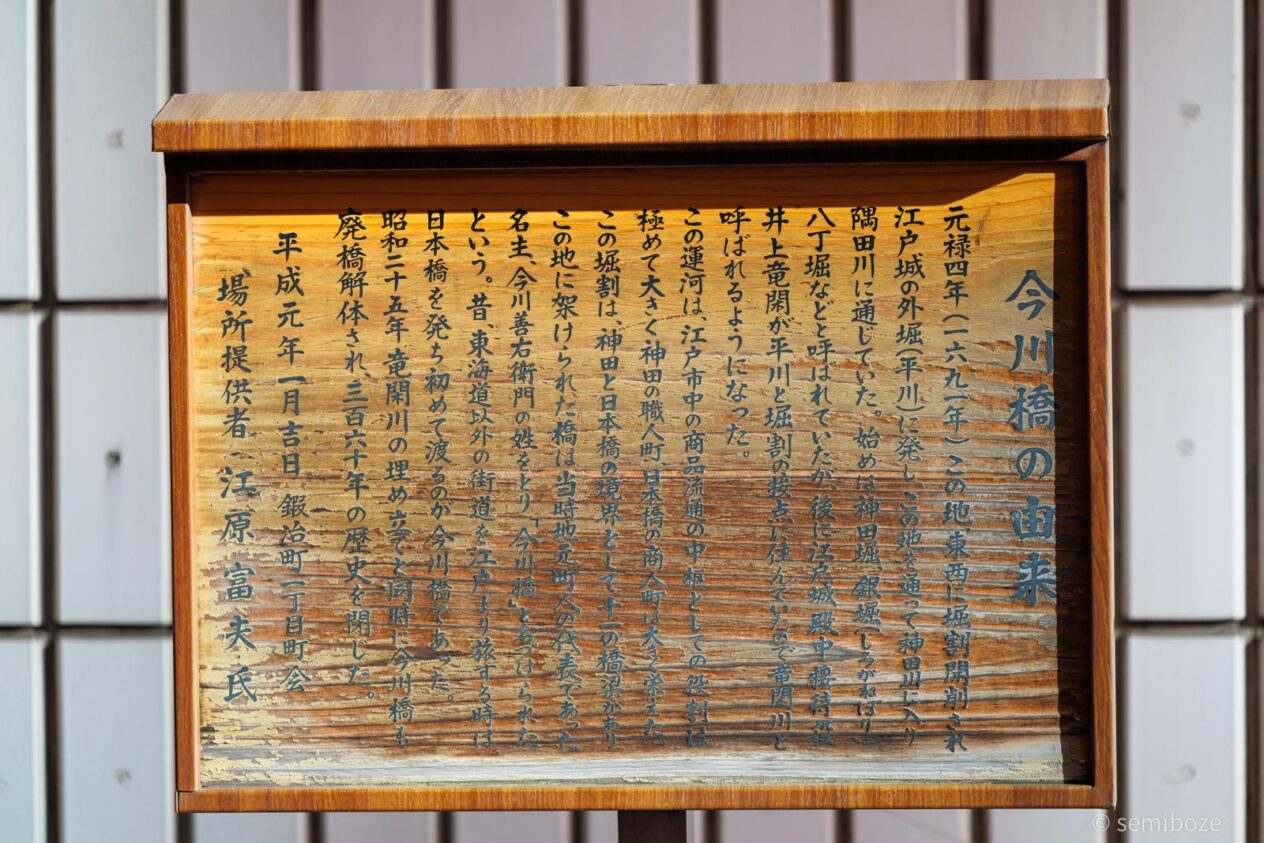 今川橋の由来
元禄四年(一六九一年)この地東西に堀割開削され
江戸城の外堀(平川)に発し、この地を通って神田川に入り
隅田川に通じていた。始めは神田堀、銀堀(しろがねぼり)
八丁堀などと呼ばれていたが後に江戸城殿中接待役
井上竜閑が平川と堀割の接点に住んでいたので竜閑川と
呼ばれるようになった。
この運河は、江戸市中の商品流通の中枢としての役割は
極めて大きく神田の職人町、日本橋の商人町は大きく栄えた。
この堀割は、神田と日本橋の境界として十一の橋梁があり
この地に架けられた橋は当時地元町人の代表であった
名主、今川善右衛門の姓をとり「今川橋」と名づけられた
という。昔、東海道以外の街道を江戸より旅する時は、
日本橋を発ち初めて渡るのが今川橋であった。
昭和二十五年竜閑川の埋め立てと同時に今川橋も
廃橋解体され、三百六十年の歴史を閉じた。
平成元年一月吉日 鍛冶町一丁目町会
場所提供者 江原富夫氏
© semiboze